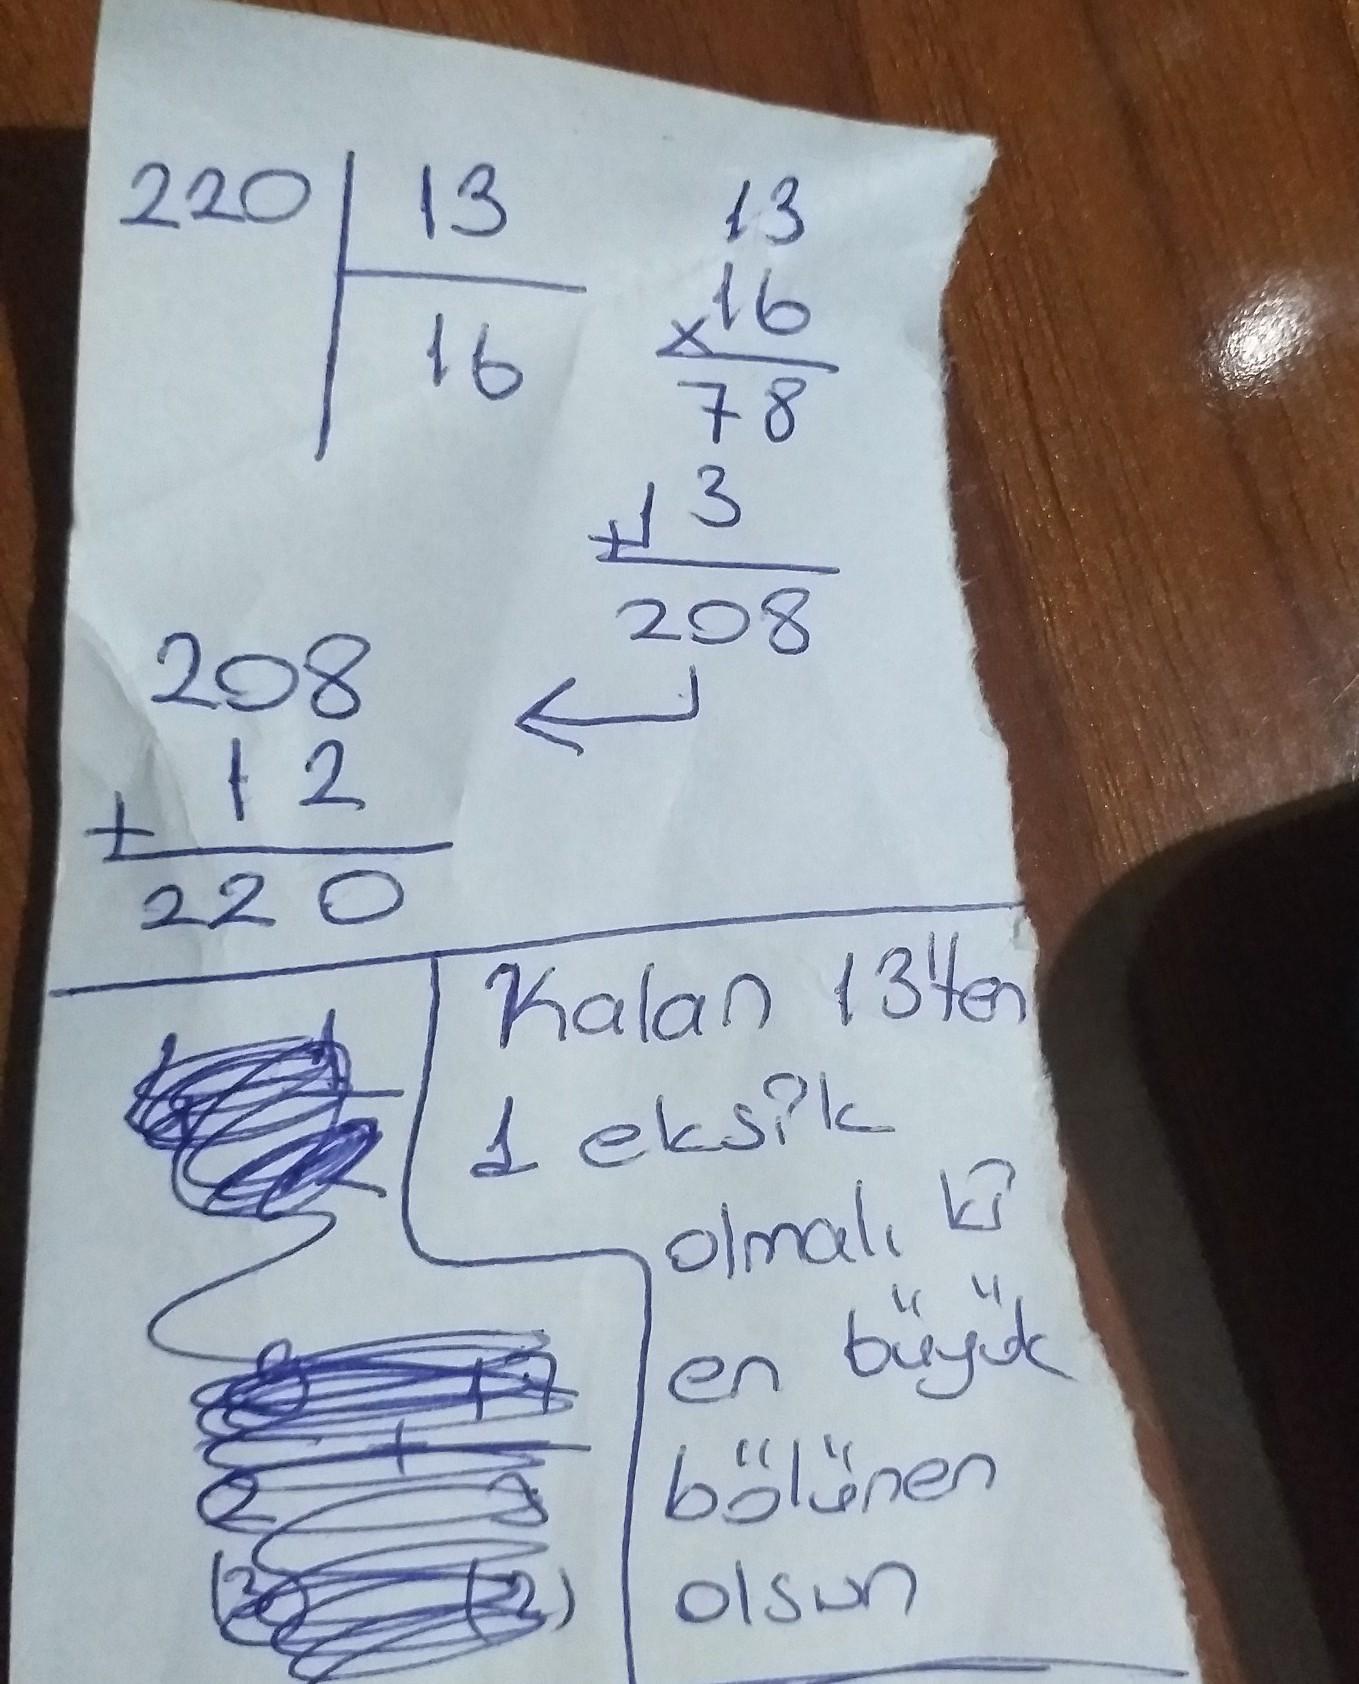 220 13
16
13
x 16
78
+ 13
208
208
+ 12
220
Kalan 13'ten
1 eksik
olmalı ki
en büyük
bölünen
olsun